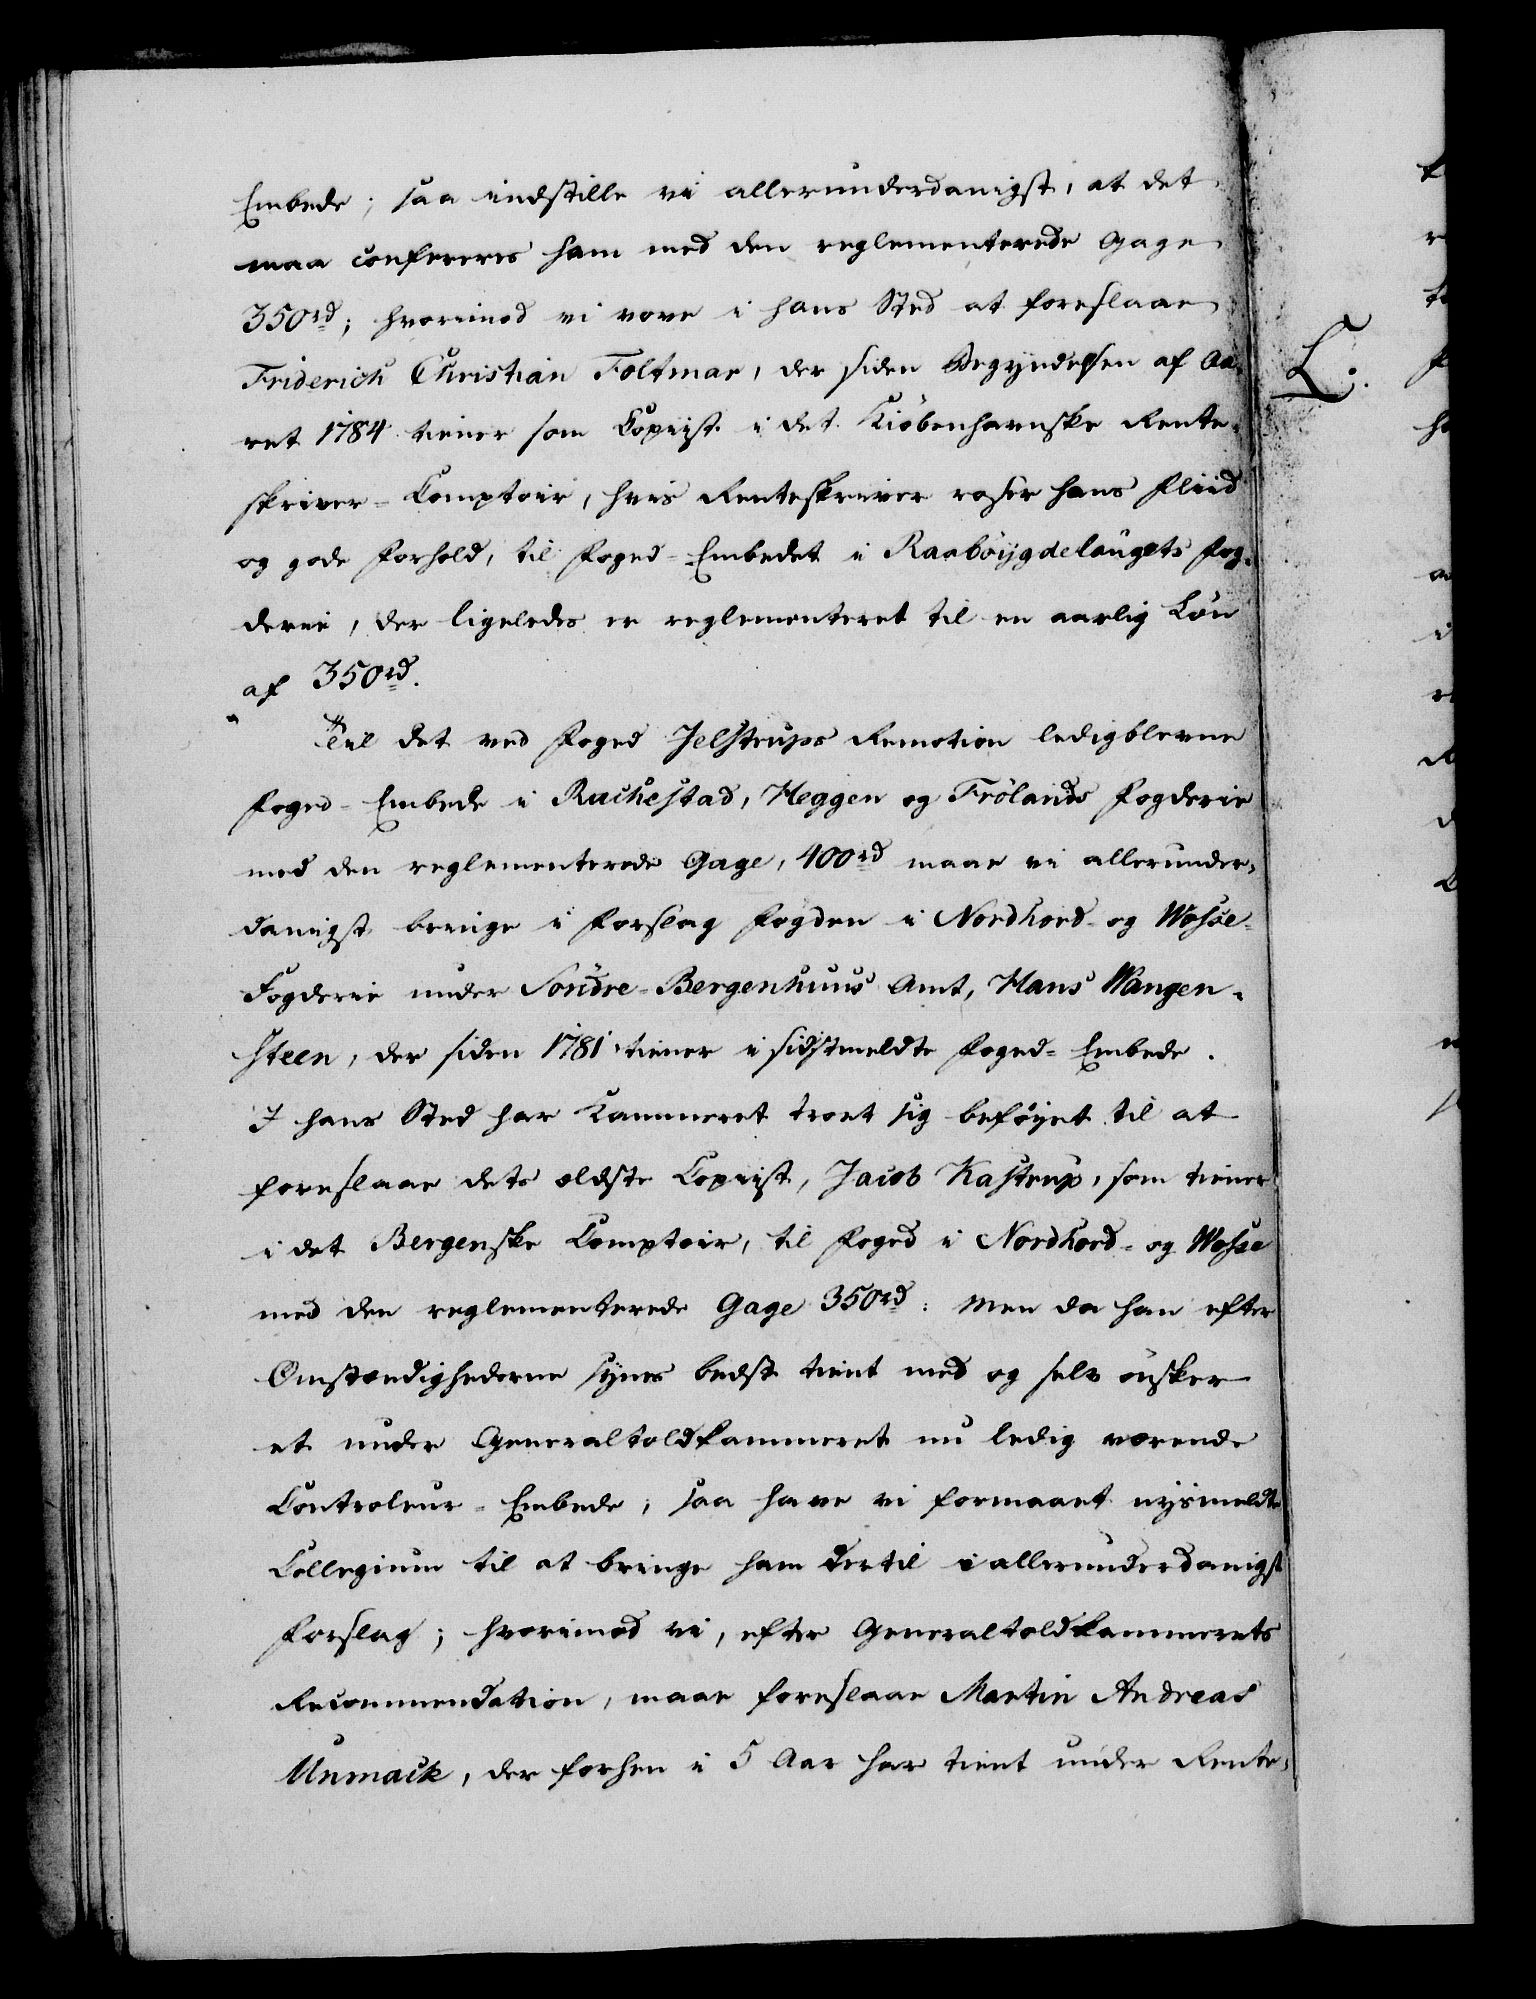 Embede; saa indstille vi allerunderdanigst, at det
maa confereres ham med den reglementerede Gage
350rd; hvorimod vi vove i hans Sted at foreslaae
Friderich Christian Foltmar, der siden Begyndelsen af Aa-
ret 1784 tiener som Copiist i det Kiöbenhavnske Rente-
skriver-Comptoir, hvis Renteskriver roser hans Fliid
og gode Forhold, til Foged-Embedet i Raaböygdelaugets Fog-
derie, der ligeledes er reglementeret til en aarlig Lön
af 350rd.
Til det ved Foged Jelstrups Remotion ledigblevne
Foged-Embede i Rachestad, Heggen og Frölands Fogderie
med den reglementerede Gage, 400rd maae vi allerunder-
danigst bringe i Forslag Fogden i Nordhord- og Wosse-
Fogderie under Söndre-Bergenhuus Amt, Hans Wangen-
steen, der siden 1781 tiener i sidstmeldte Foged-Embede.
I hans Sted har Kammeret troet sig beföyet til at
foreslaae dets ældste Copiist, Jacob Kastrup, som tiener
i det Bergenske Comptoir, til Foged i Nordhord- og Wosse
med den reglementerede Gage 350rd: Men da han efter
Omstændighederne synes bedst tient med og selv önsker
et under Generaltoldkammeret nu ledig værende
Controleur-Embede, saa have vi formaaet nysmeldte
Collegium til at bringe ham dertil i allerunderdanigst
Forslag; hvorimod vi, efter Generaltoldkammerets
Recommendation, maae foreslaae Martin Andreas
Unmack, der forhen i 5 Aar har tient under Rente-